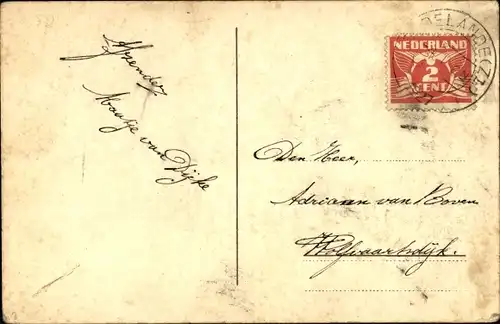 Afzender
Maatje van Dijke
NEDERLAND
2
CENT
Den Heer,
Adriaan van Boven
Wolfaartsdijk.